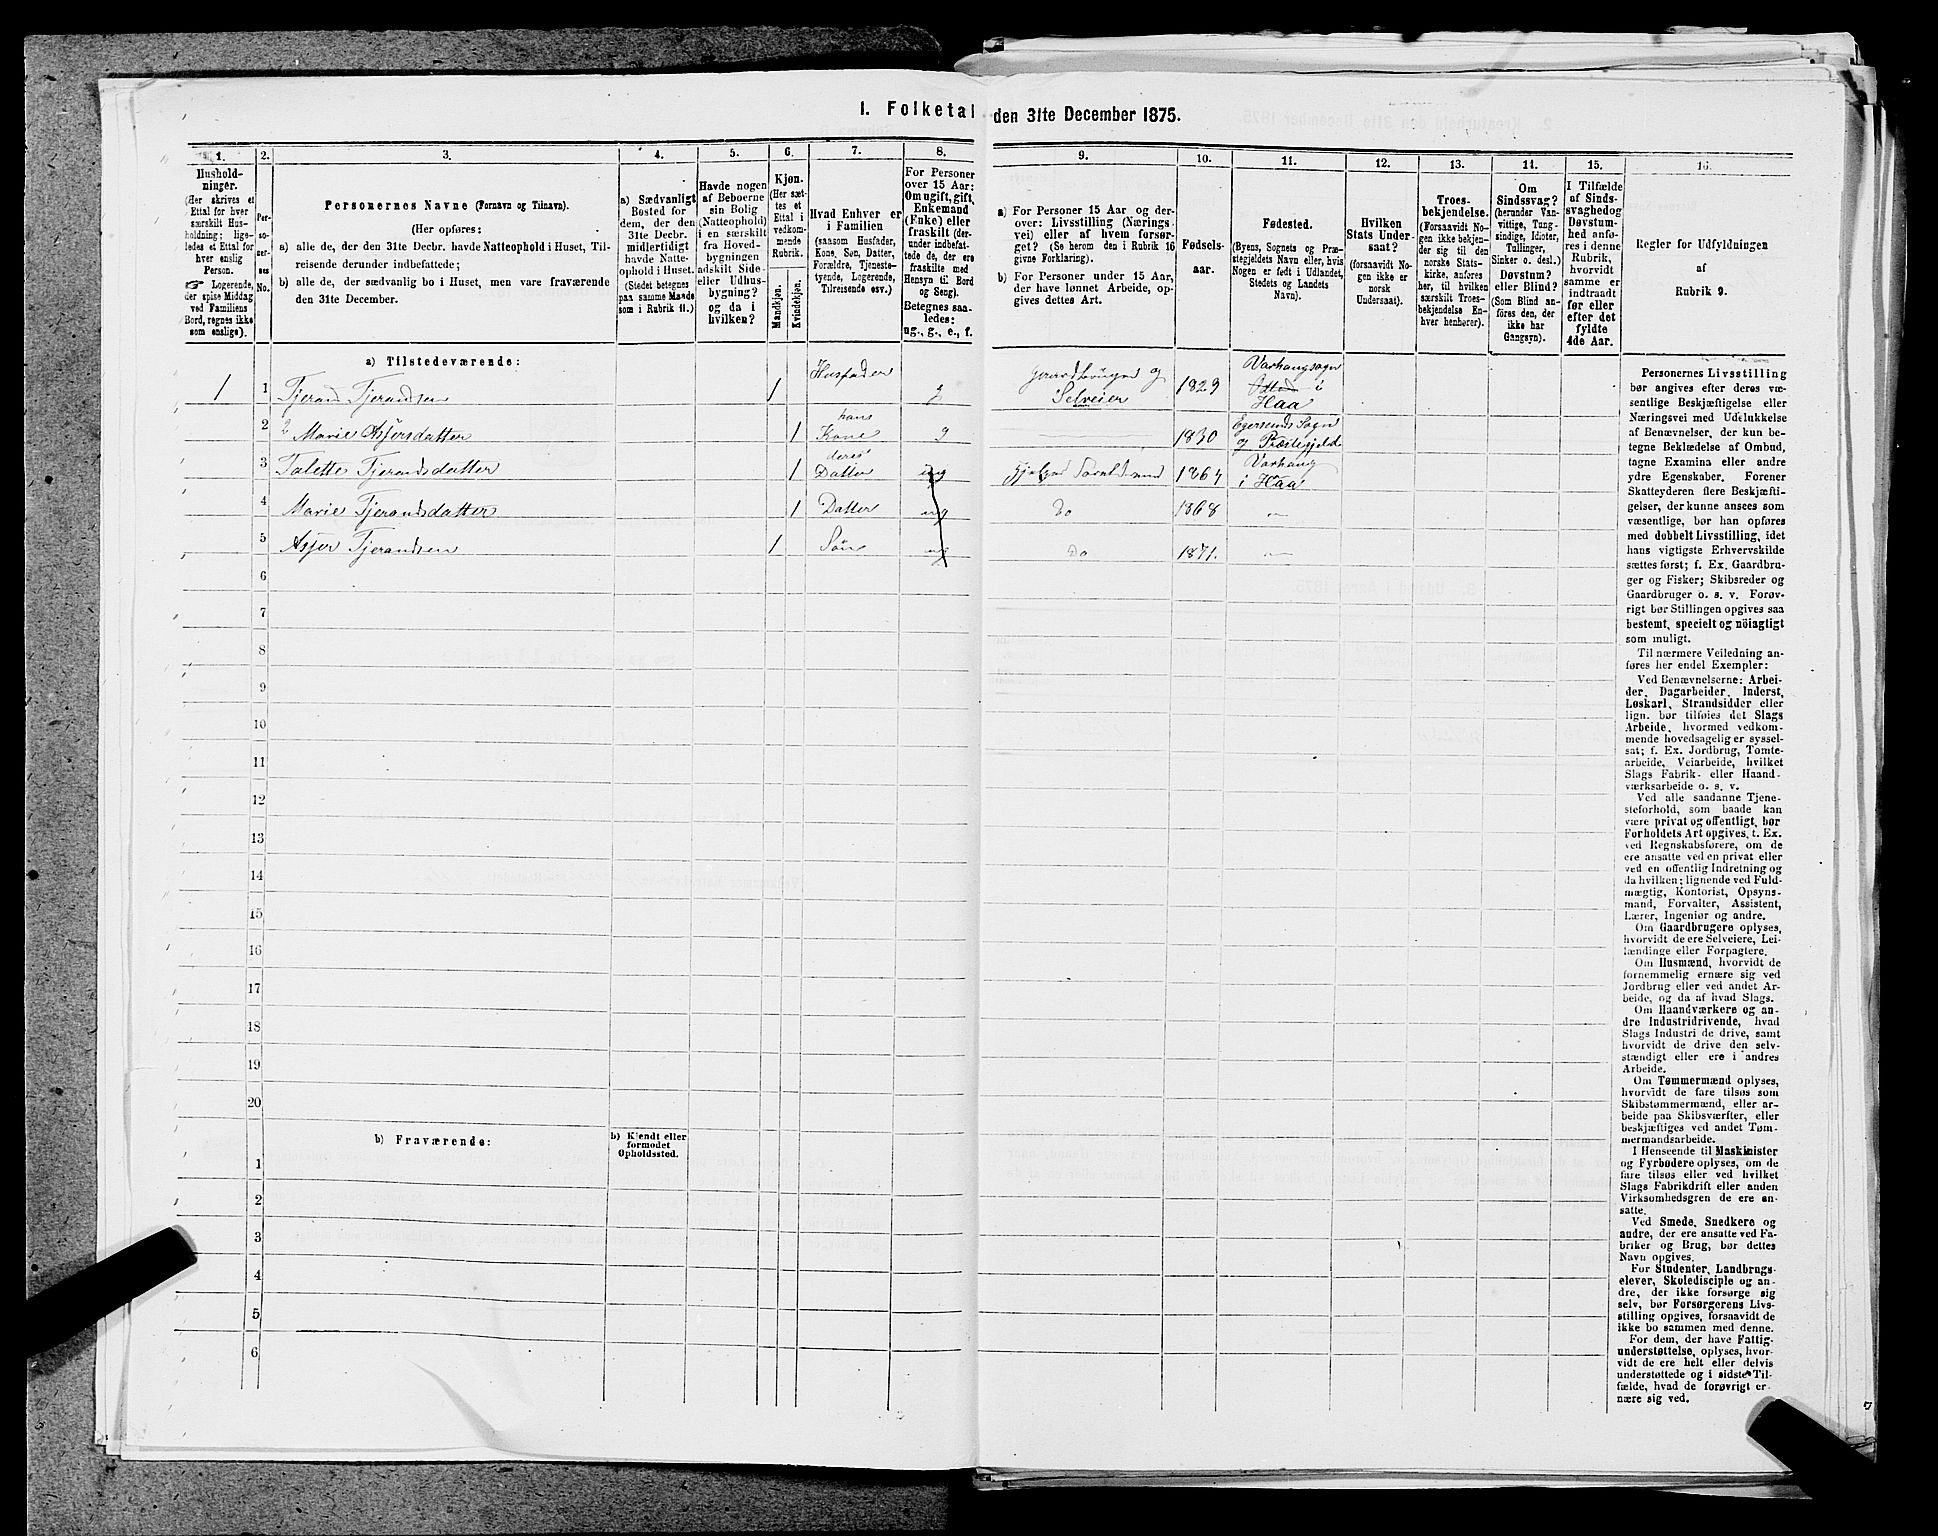 I. Folketal den 31te December 1875.
1.
Hushold-
ninger.
(Her skrives et
Ettal for hver
særskilt Hus-
holdning; lige-
ledes et Ettal for
hver enslig
Person.
☞ Logerende,
der spise Middag
ved Familiens
Bord, regnes ikke
som enslige).
2.
Per-
so-
ner-
nes
No.
3.
Personernes Navne (Fornavn og Tilnavn).
(Her opføres:
a) alle de, der den 31te Decbr. havde Natteophold i Huset, Til-
reisende derunder indbefattede;
b) alle de, der sædvanlig bo i Huset, men vare fraværende
den 31te December.
4.
a) Sædvanligt
Bosted for
dem, der den
31te Decbr.
midlertidigt
havde Natte-
ophold i Huset.
(Stedet betegnes
paa samme Maade
som i Rubrik 11.)
5.
Havde nogen
af Beboerne
sin Bolig
(Natteophold)
i en særskilt
fra Hoved-
bygningen
adskilt Side-
eller Udhus-
bygning?
og da i
hvilken?
6.
Kjøn.
(Her sæt-
tes et
Ettal i
vedkom-
mende
Rubrik.
Mandkjøn.
Kvindekjøn.
7.
Hvad Enhver er
i Familien
(saasom Husfader,
Kone, Søn, Datter,
Forældre, Tjeneste-
tyende, Logerende,
Tilreisende osv.)
8.
For Personer
over 15 Aar:
Om ugift, gift,
Enkemand
(Enke) eller
fraskilt (der-
under indbefat-
tede de, der ere
fraskilte med
Hensyn til Bord
og Seng).
Betegnes saa-
ledes:
ug., g., e., f.
9.
a) For Personer 15 Aar og der-
over: Livsstilling (Nærings-
vei) eller af hvem forsør-
get? (Se herom den i Rubrik 16
givne Forklaring).
b) For Personer under 15 Aar,
der have lønnet Arbeide, op-
gives dettes Art.
10.
Fødsels-
aar.
11.
Fødested.
(Byens, Sognets og Præ-
stegjeldets Navn eller, hvis
Nogen er født i Udlandet,
Stedets og Landets
Navn).
12.
Hvilken
Stats Under-
saat?
(forsaavidt No-
gen ikke er
norsk
Undersaat).
13.
Troes-
bekjendelse.
(Forsaavidt No-
gen ikke bekjen-
der sig til den
norske Stats-
kirke, anføres
her, til hvilken
særskilt Troes-
bekjendelse En-
hver henhører).
14.
Om
Sindssvag?
(herunder Van-
vittige, Tung-
sindige, Idioter,
Tullinger,
Sinker o. desl.)
Døvstum?
eller Blind?
(Som Blind an-
føres den, der
ikke har
Gangsyn).
15.
I Tilfælde
af Sinds-
svaghed og
Døvstum-
hed anfø-
res i denne
Rubrik,
hvorvidt
samme er
indtraadt
før eller
efter det
fyldte
4de Aar.
16.
Regler for Udfyldningen
af
Rubrik 9.
a) Tilstedeværende:
1 1 Tjerand Tjerandsen 1 Husfader g Gaardbruger og Selveier 1829 Varhaug sogn i Haa
2 2 Marie Asjersdatter 1 hans Kone g 1830 Egersunds Sogn og Præstegjeld
3 Talette Tjerandsdatter 1 deres Datter ug 1864 Varhaug i Haa
4 Marie Tjerandsdatter 1 Datter ug Do 1868 —
5 Asjer Tjerandsen 1 Søn ug Do 1871. —
6
7
8
9
10
11
12
13
14
15
16
17
18
19
20
b) Fraværende:
b) Kjendt eller
formodet
Opholdssted.
1
2
3
4
5
6
Personernes Livsstilling
bør angives efter deres væ-
sentlige Beskjæftigelse eller
Næringsvei med Udelukkelse
af Benævnelser, der kun be-
tegne Beklædelse af Ombud,
tagne Examina eller andre
ydre Egenskaber. Forener
Skatteyderen flere Beskjæfti-
gelser, der kunne ansees som
væsentlige, bør han opføres
med dobbelt Livsstilling, idet
hans vigtigste Erhvervskilde
sættes først; f. Ex. Gaardbru-
ger og Fisker; Skibsreder og
Gaardbruger o. s. v. Forøv-
rigt bør Stillingen opgives saa
bestemt, specielt og nöiagtigt
som muligt.
Til nærmere Veiledning an-
føres her endel Exempler:
Ved Benævnelserne: Arbei-
der, Dagarbeider, Inderst,
Løskarl, Strandsidder eller
lign. bør tilføies det Slags
Arbeide, hvormed vedkom-
mende hovedsagelig er syssel-
sat; f. Ex. Jordbrug, Tomte-
arbeide, Veiarbeide, hvilket
Slags Fabrik- eller Haand-
værksarbeide o. s. v.
Ved alle saadanne Tjene-
steforhold, som baade kan
være privat og offentligt, bør
Forholdets Art opgives, t. Ex.
ved Regnskabsførere, om de
ere ansatte ved en privat eller
ved en offentlig Indretning og
da hvilken; lignende ved Fuld-
mægtig, Kontorist, Opsyns-
mand, Forvalter, Assistent,
Lærer, Ingeniør og andre.
Om Gaardbrugere oplyses,
hvorvidt de ere Selveiere, Lei-
lændinge eller Forpagtere.
Om Husmænd, hvorvidt de
fornemmelig ernære sig ved
Jordbrug eller ved andet Ar-
beide, og da af hvad Slags.
Om Haandværkere og an-
dre Industridrivende, hvad
Slags Industri de drive, samt
hvorvidt de drive den selv-
stændigt eller ere i andres
Arbeide.
Om Tømmermænd oplyses,
hvorvidt de fare tilsøs som
Skibstømmermænd, eller ar-
beide paa Skibsværfter, eller
beskjæftiges ved andet Tøm-
mermandsarbeide.
I Henseende til Maskinister
og Fyrbødere oplyses, om de
fare tilsøs eller ved hvilket
Slags Fabrikdrift eller anden
Virksomhedsgren de ere an-
satte.
Ved Smede, Snedkere og
andre, der ere ansatte ved Fa-
briker og Brug, bør dettes
Navn opgives.
For Studenter, Landbrugs-
elever, Skoledisciple og an-
dre, der ikke forsørge sig
selv, bør Forsørgerens Livs-
stilling opgives, forsaavidt de
ikke bo sammen med denne.
For dem, der have Fattig-
understøttelse, oplyses, hvor-
vidt de ere helt eller delvis
understøttede og i sidste Til-
fælde, hvad de forøvrigt er-
nære sig ved.